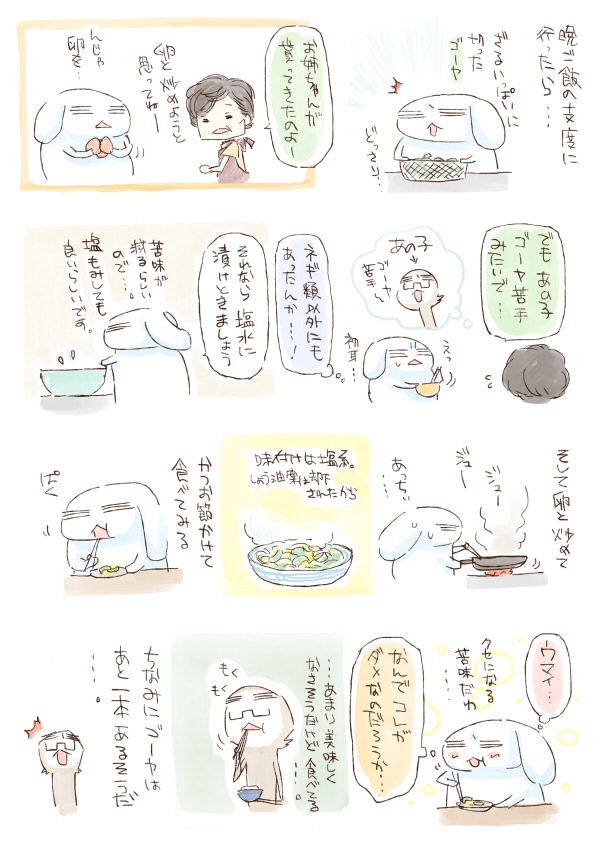 晩ご飯の支度に
行ったら…
ざるいっぱいに
切った
ゴーヤ
どっさり…
お姉ちゃんが
貰ってきたのよー
卵と炒めようと
思ってねー
んじゃ
卵を…
でも あの子
ゴーヤ苦手
みたいで…
あの子
ゴーヤ
苦手
えっ
初耳…
ネギ類以外にも
あったんか…!
それなら 塩水に
漬けときましょう
苦味が
減るらしい
ので…。
塩もみしても
良いらしいです。
そして卵と炒めて
ジュー
ジュー
あっちぃ…
味付けは塩系。
しょう油案は却下
されたから
かつお節かけて
食べてみる
ぱく
ウマイ…
クセになる
苦味だわ
…。
なんでコレが
ダメなのだろうか…
…あまり美味しく
なさそうだけど食べてる
…。
もく
もく
ちなみにゴーヤは
あと一本あるそうだ
…。